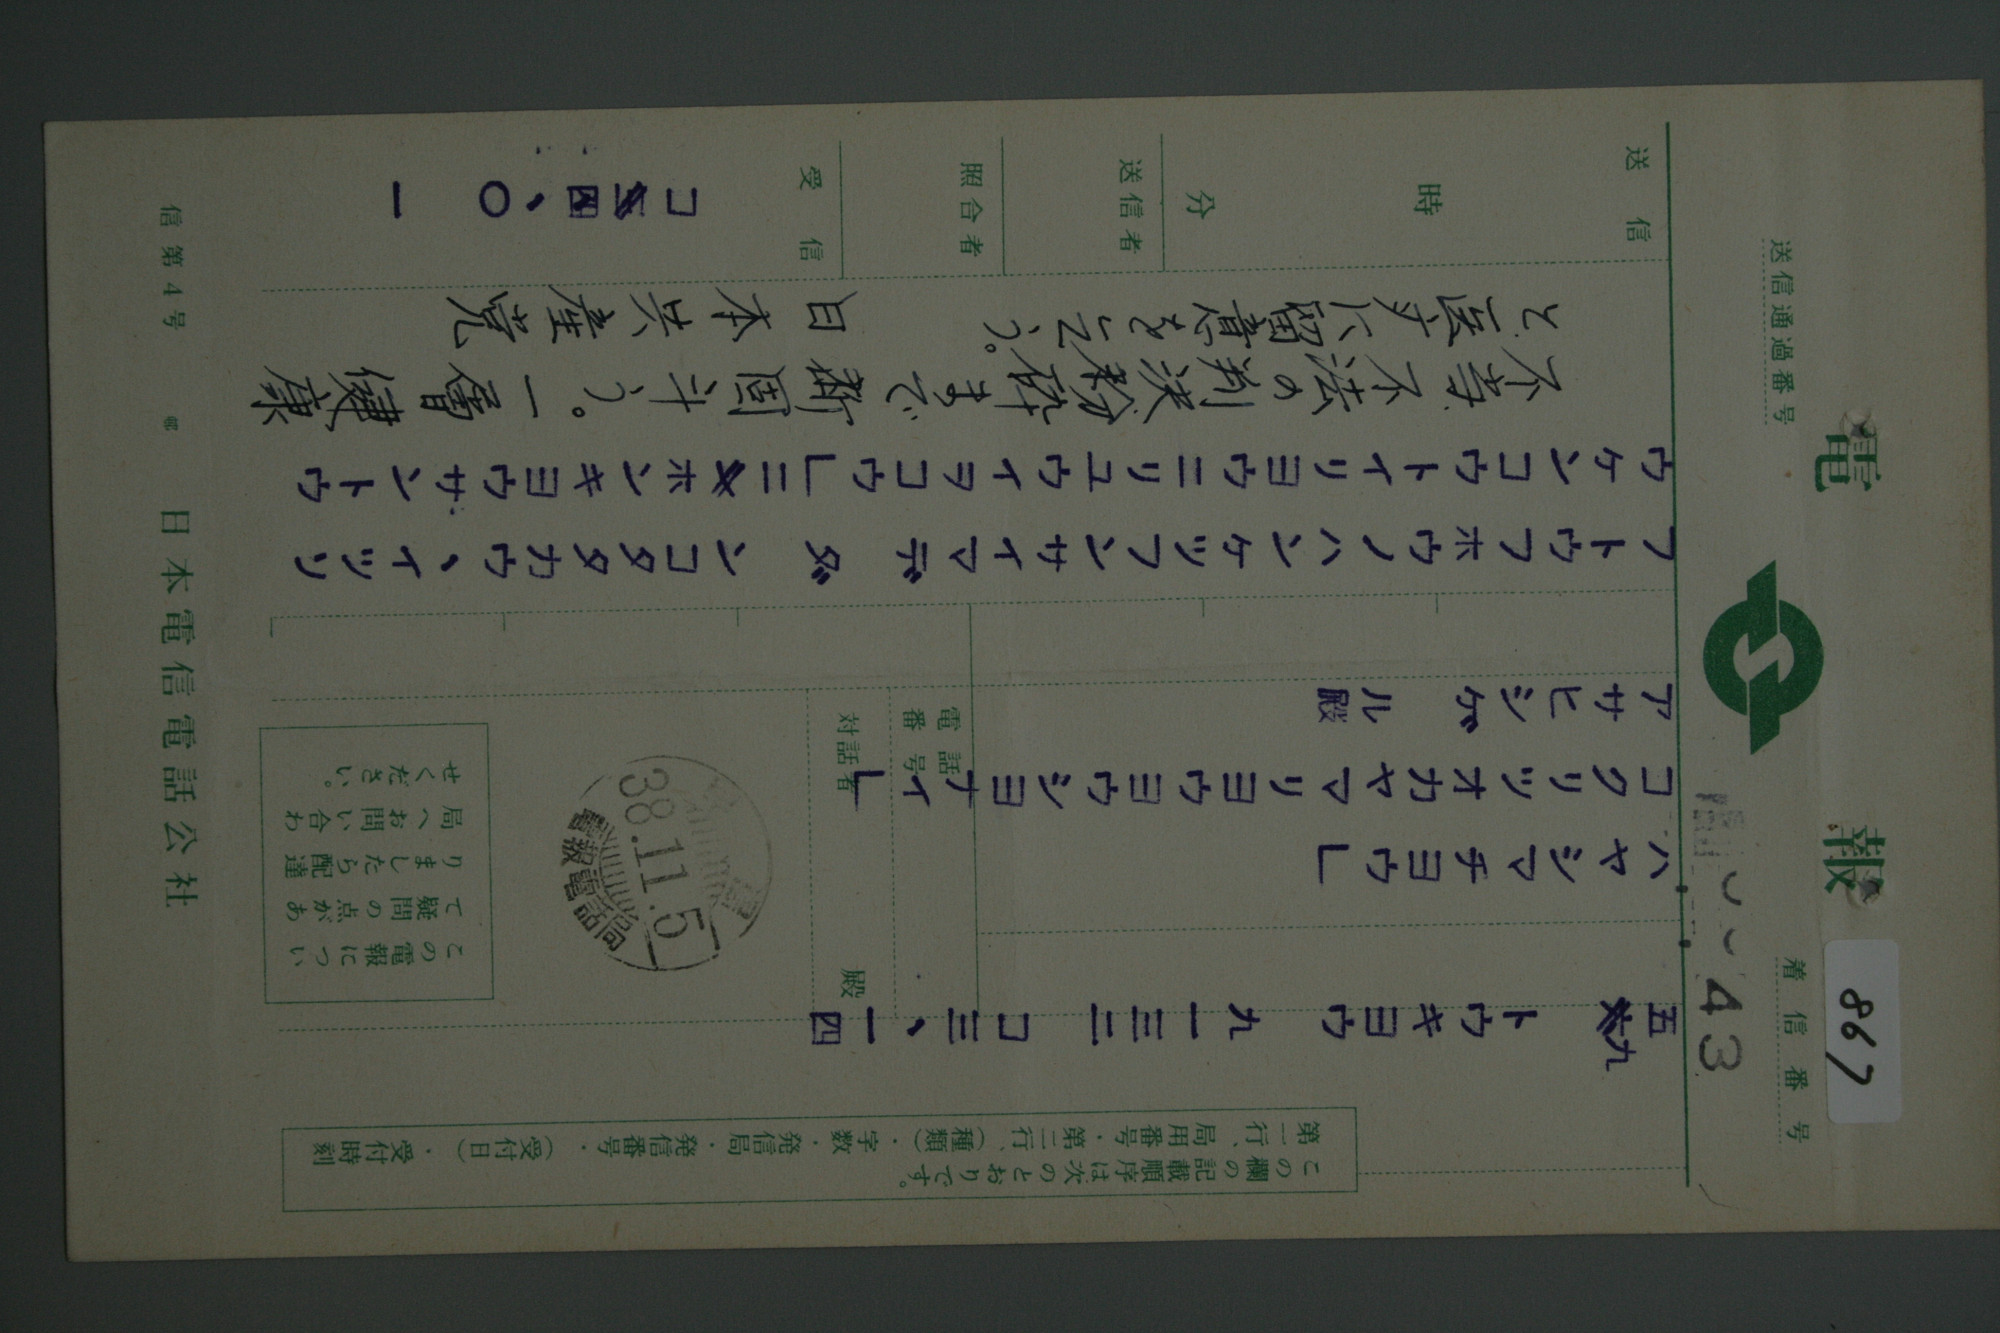 電報
867
着信番号
43
送信通過番号
この欄の記載順序は次のとおりです。
第一行、局用番号・第二行、(種類)・字数・発信局・発信番号・(受付日)・受付時刻
五九 トウキヨウ 九一三二 コ三、一四
ハヤシマチヨウ」
コクリツオカヤマリヨウヨウシヨナイ」
アサヒシゲル殿
電話番号
対話者 殿
38.11.5
この電報につい
て疑問の点があ
りましたら配達
局へお問い合わ
せください。
フトウフホウノハンケツフンサイマデダンコタタカウ、イツソ
ウケンコウトイリヨウニリユウイヲコウ」ニホンキヨウサントウ
不当不法の判決粉砕まで断固斗う。一層健康
と医す に留意をこう。 日本共産党
送信
時
分
送信者
照合者
受信
コ四、〇一
信第4号 日本電信電話公社